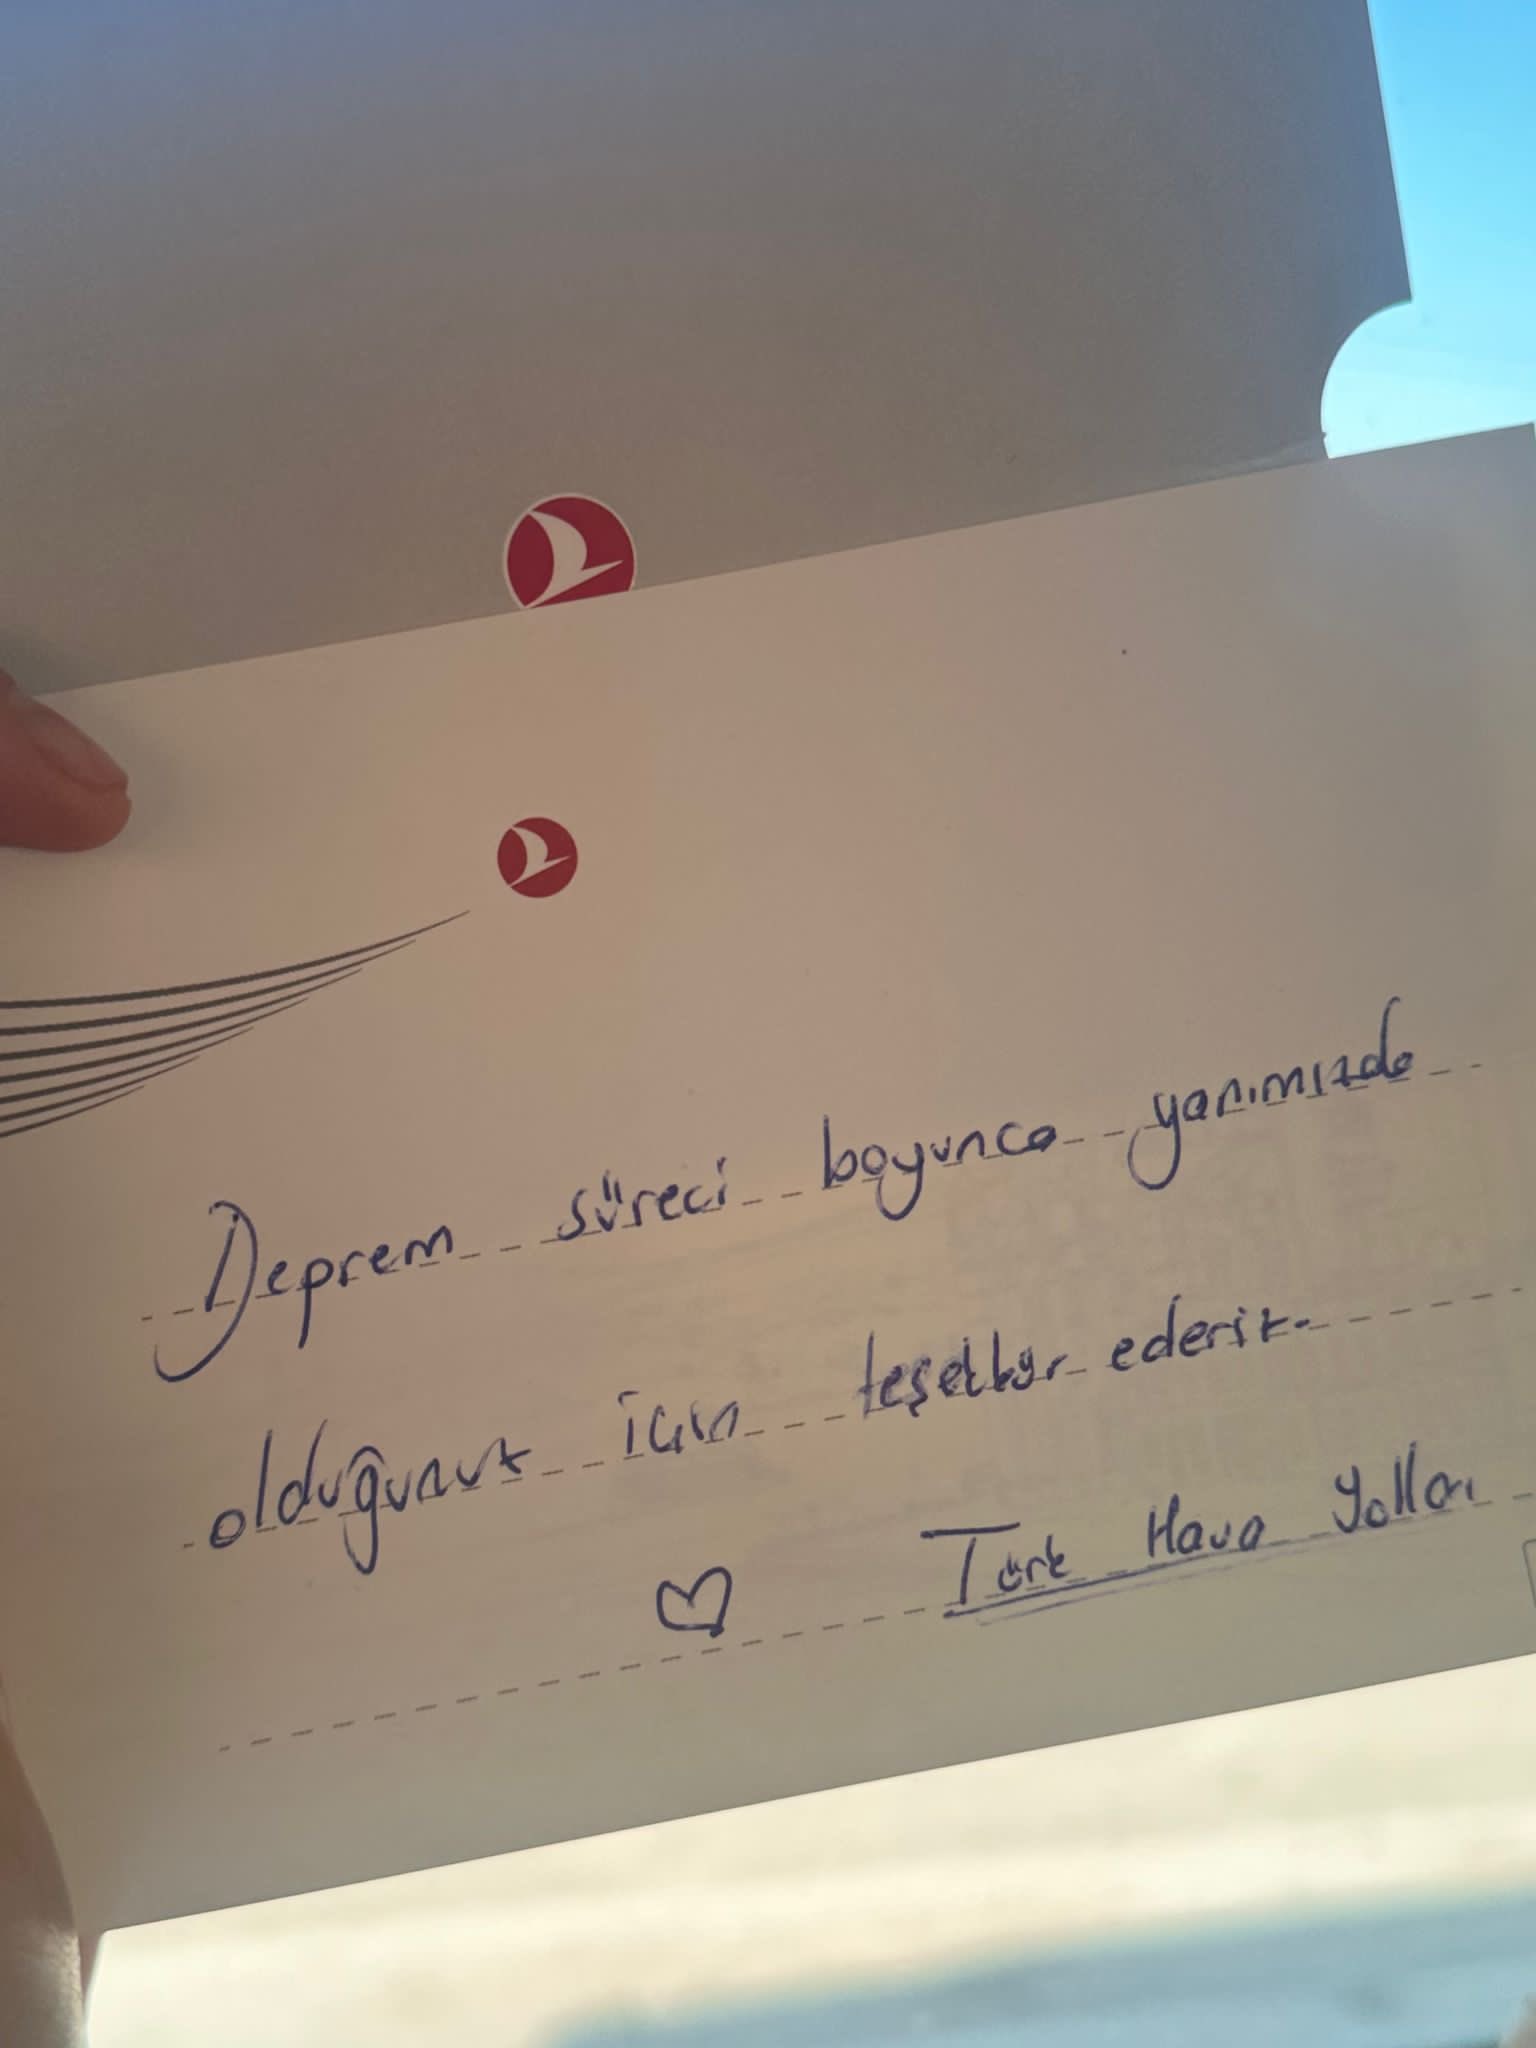 Deprem süreci boyunca yanımızda
olduğunuz için teşekkür ederiz.
Türk Hava Yolları